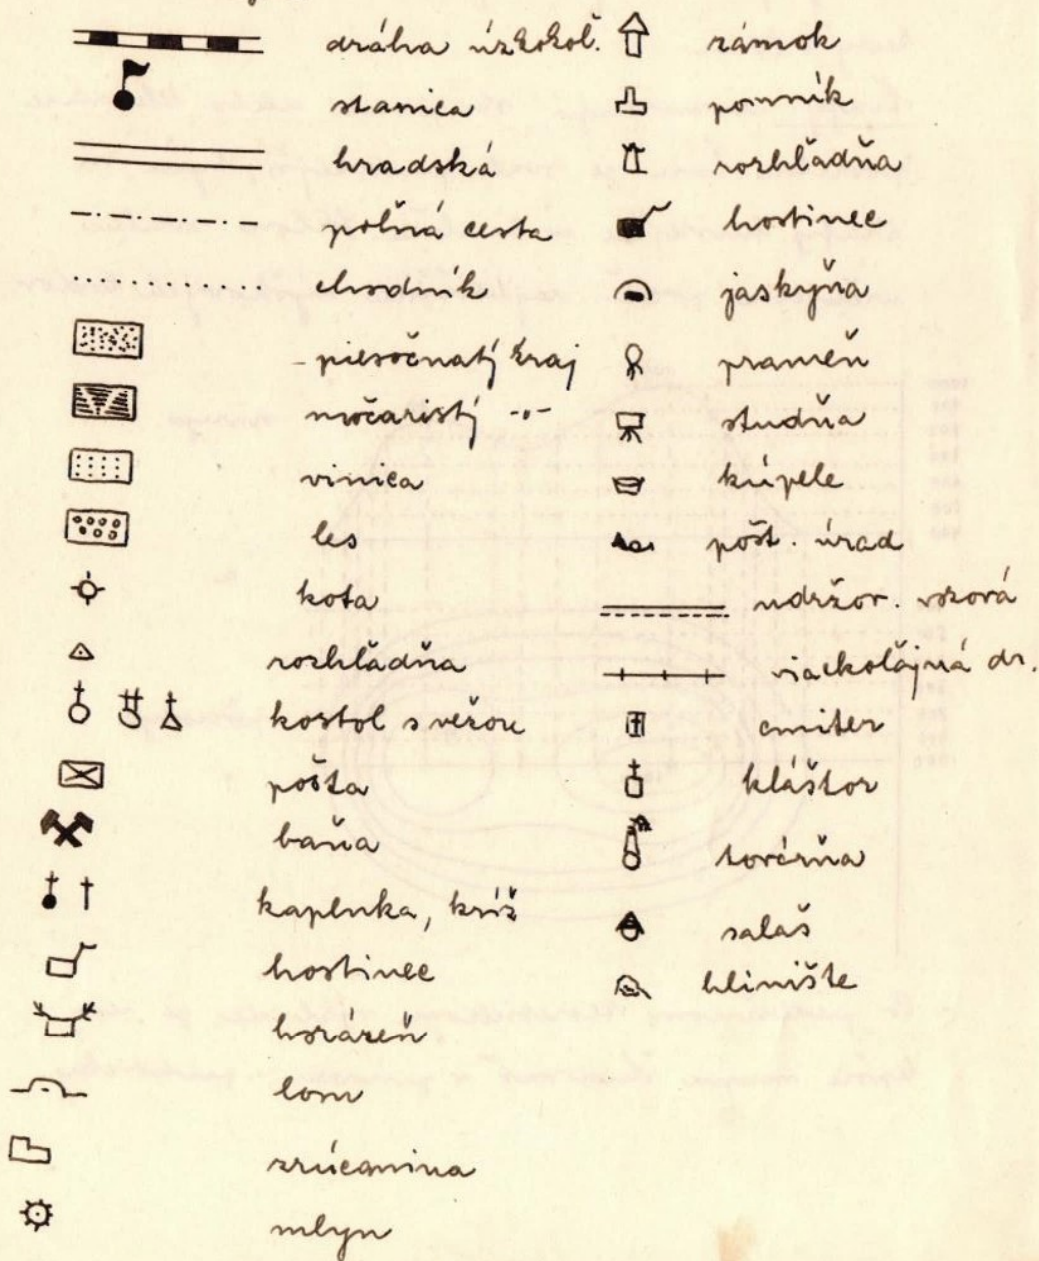 dráha úzkokoľ.
stanica
hradská
poľná cesta
chodník
piesočnatý kraj
močaristý -"-
vinica
les
kota
rozhľadňa
kostol s vežou
pošta
baňa
kaplnka, kríž
hostinec
horáreň
lom
zrúcanina
mlyn
zámok
pomník
rozhľadňa
hostinec
jaskyňa
prameň
studňa
kúpele
pošt. úrad
udržov. vozová
viackoľajná dr.
cmiter
kláštor
továrňa
salaš
hlinište